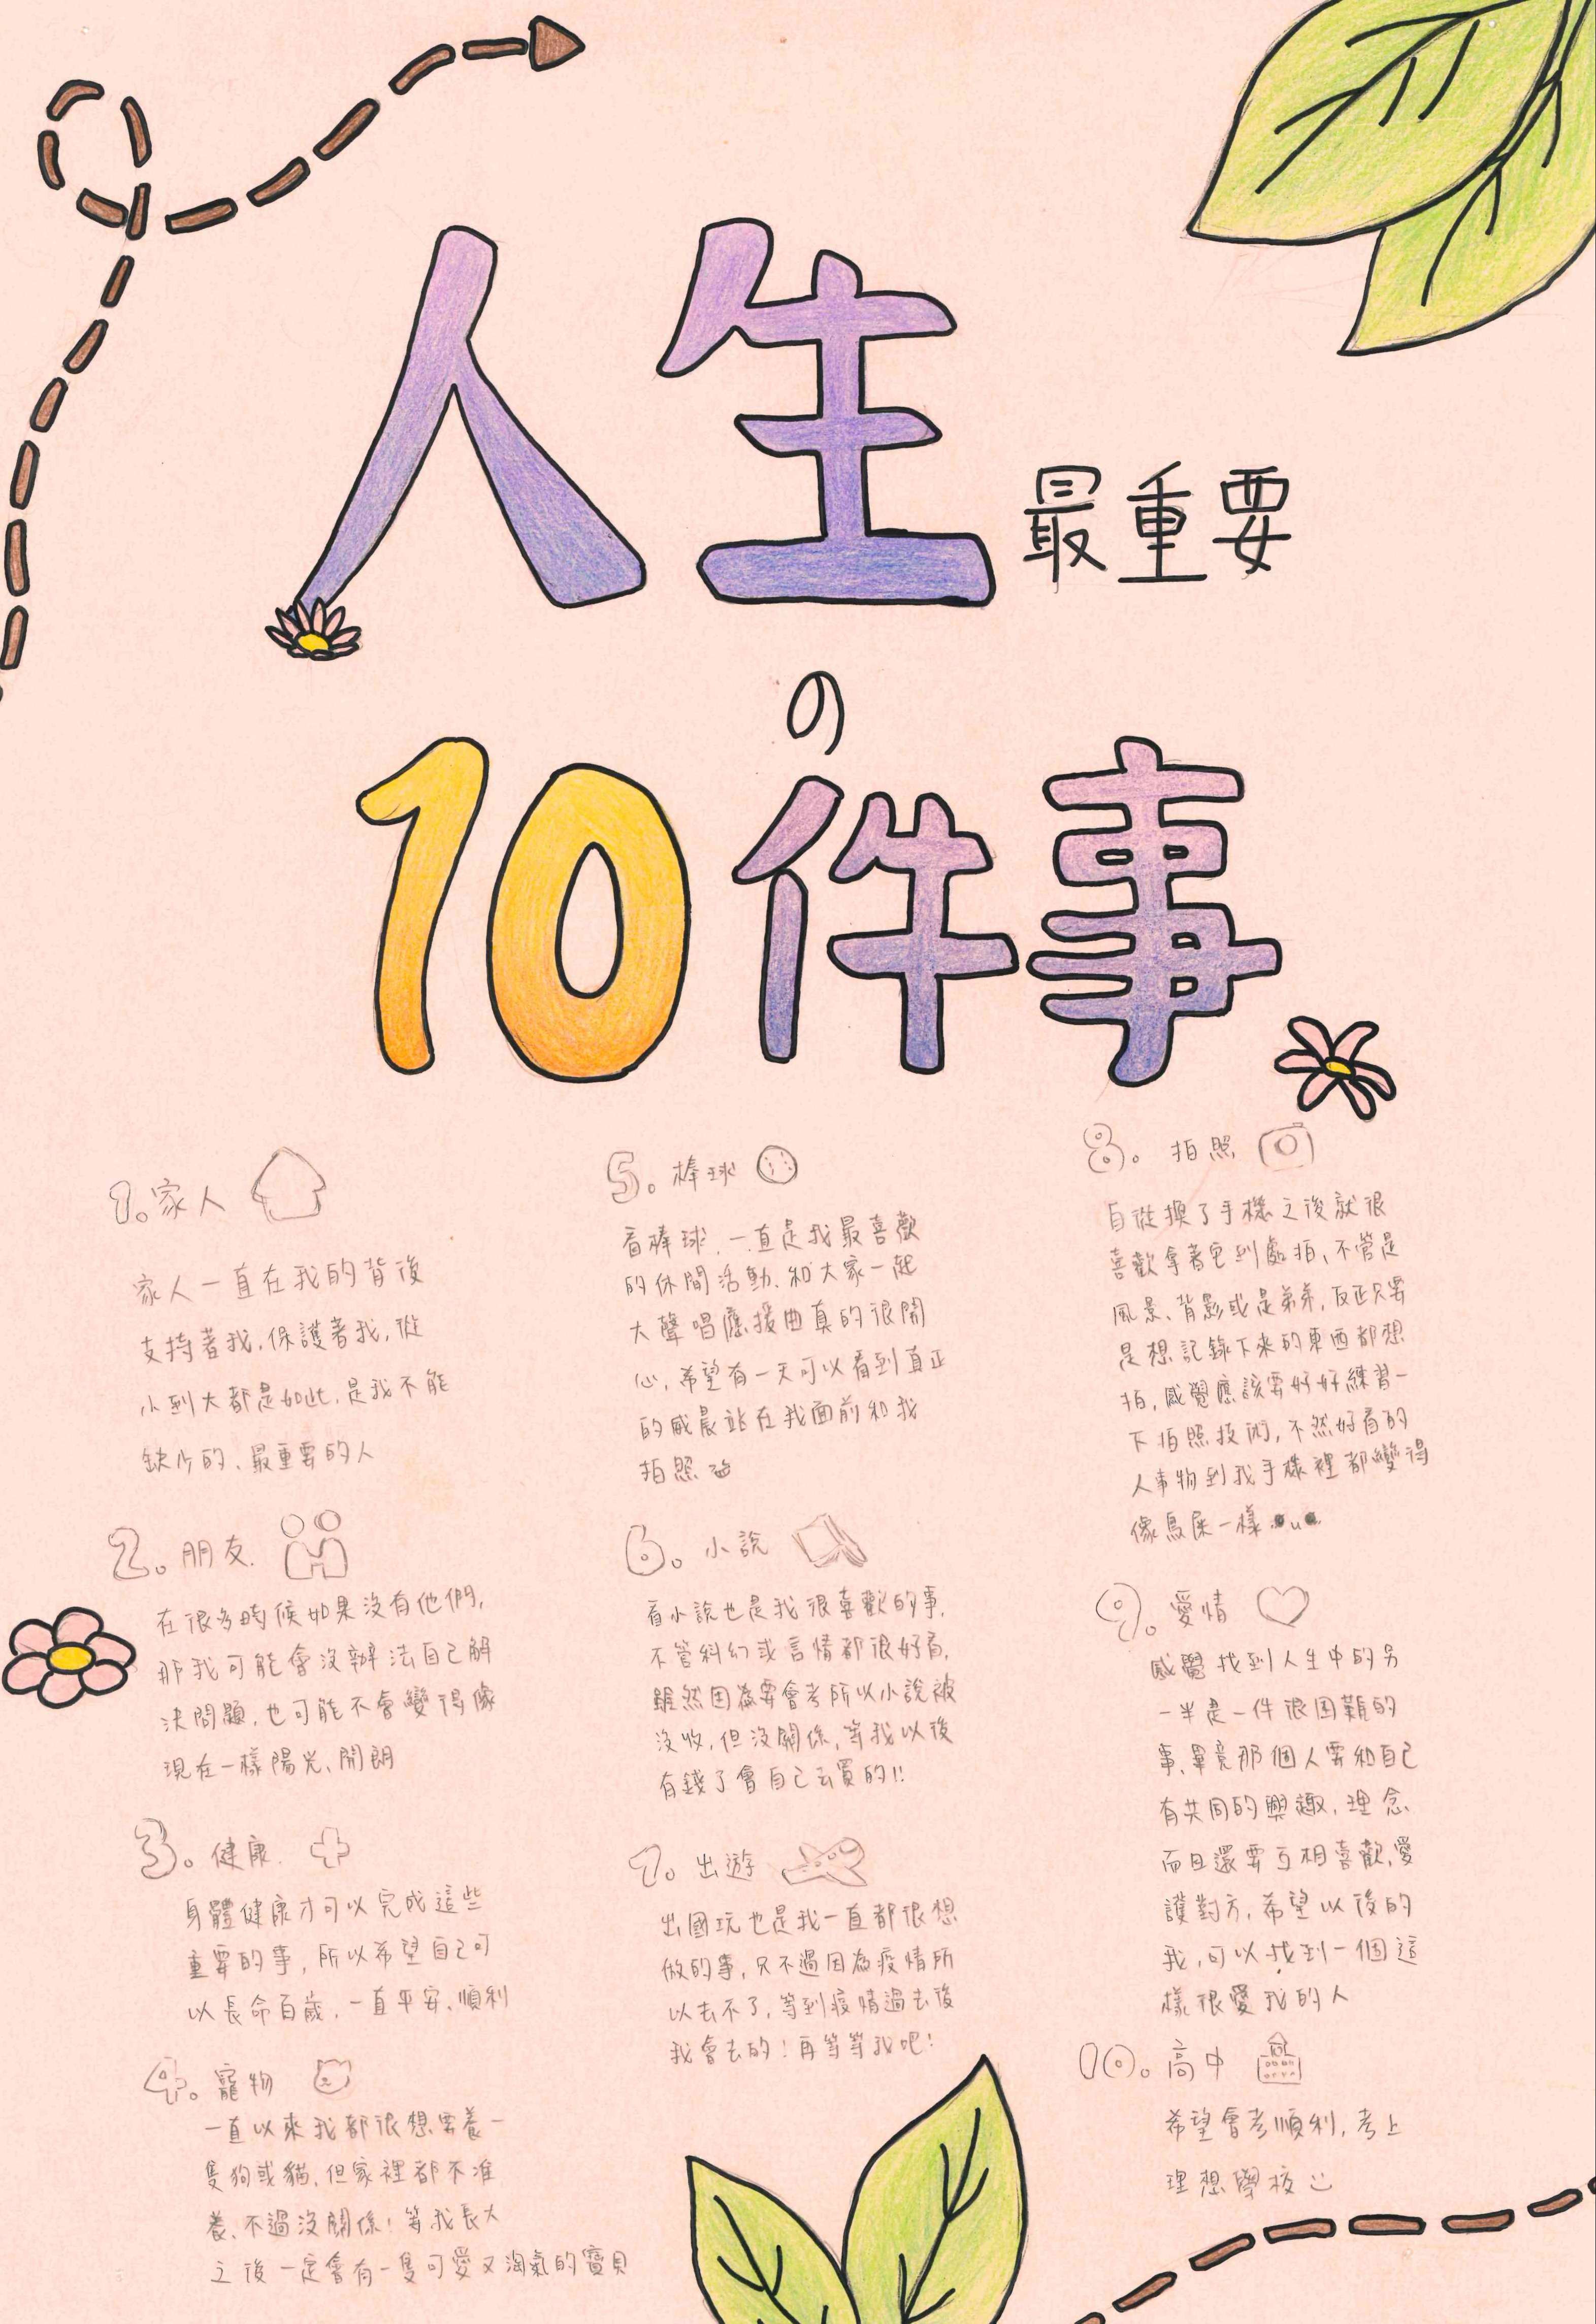 人生最重要
の
10件事
1。家人
家人一直在我的背後
支持著我,保護著我,從
小到大都是如此,是我不能
缺少的、最重要的人
2。朋友
在很多時候如果沒有他們,
那我可能會沒辦法自己解
決問題,也可能不會變得像
現在一樣陽光、開朗
3。健康
身體健康才可以完成這些
重要的事,所以希望自己可
以長命百歲,一直平安、順利
4。寵物
一直以來我都很想要養一
隻狗或貓,但家裡都不准
養、不過沒關係!等我長大
之後一定會有一隻可愛又淘氣的寶貝
5。棒球
看棒球,一直是我最喜歡
的休閒活動,和大家一起
大聲唱應援曲真的很開
心,希望有一天可以看到真正
的威晨站在我面前和我
拍照
6。小說
看小說也是我很喜歡的事,
不管科幻或言情都很好看,
雖然因為要會考所以小說被
沒收,但沒關係,等我以後
有錢了會自己去買的!!
7。出遊
出國玩也是我一直都很想
做的事,只不過因為疫情所
以去不了,等到疫情過去後
我會去的!再等等我吧!
8。拍照
自從換了手機之後就很
喜歡拿著它到處拍,不管是
風景、背影或是弟弟,反正只要
是想記錄下來的東西都想
拍,感覺應該要好好練習一
下拍照技術,不然好看的
人事物到我手機裡都變得
像鳥屎一樣
9。愛情
感覺找到人生中的另
一半是一件很困難的
事,畢竟那個人要和自己
有共同的興趣,理念
而且還要互相喜歡,愛
護對方,希望以後的
我,可以找到一個這
樣很愛我的人
10。高中
希望會考順利,考上
理想學校